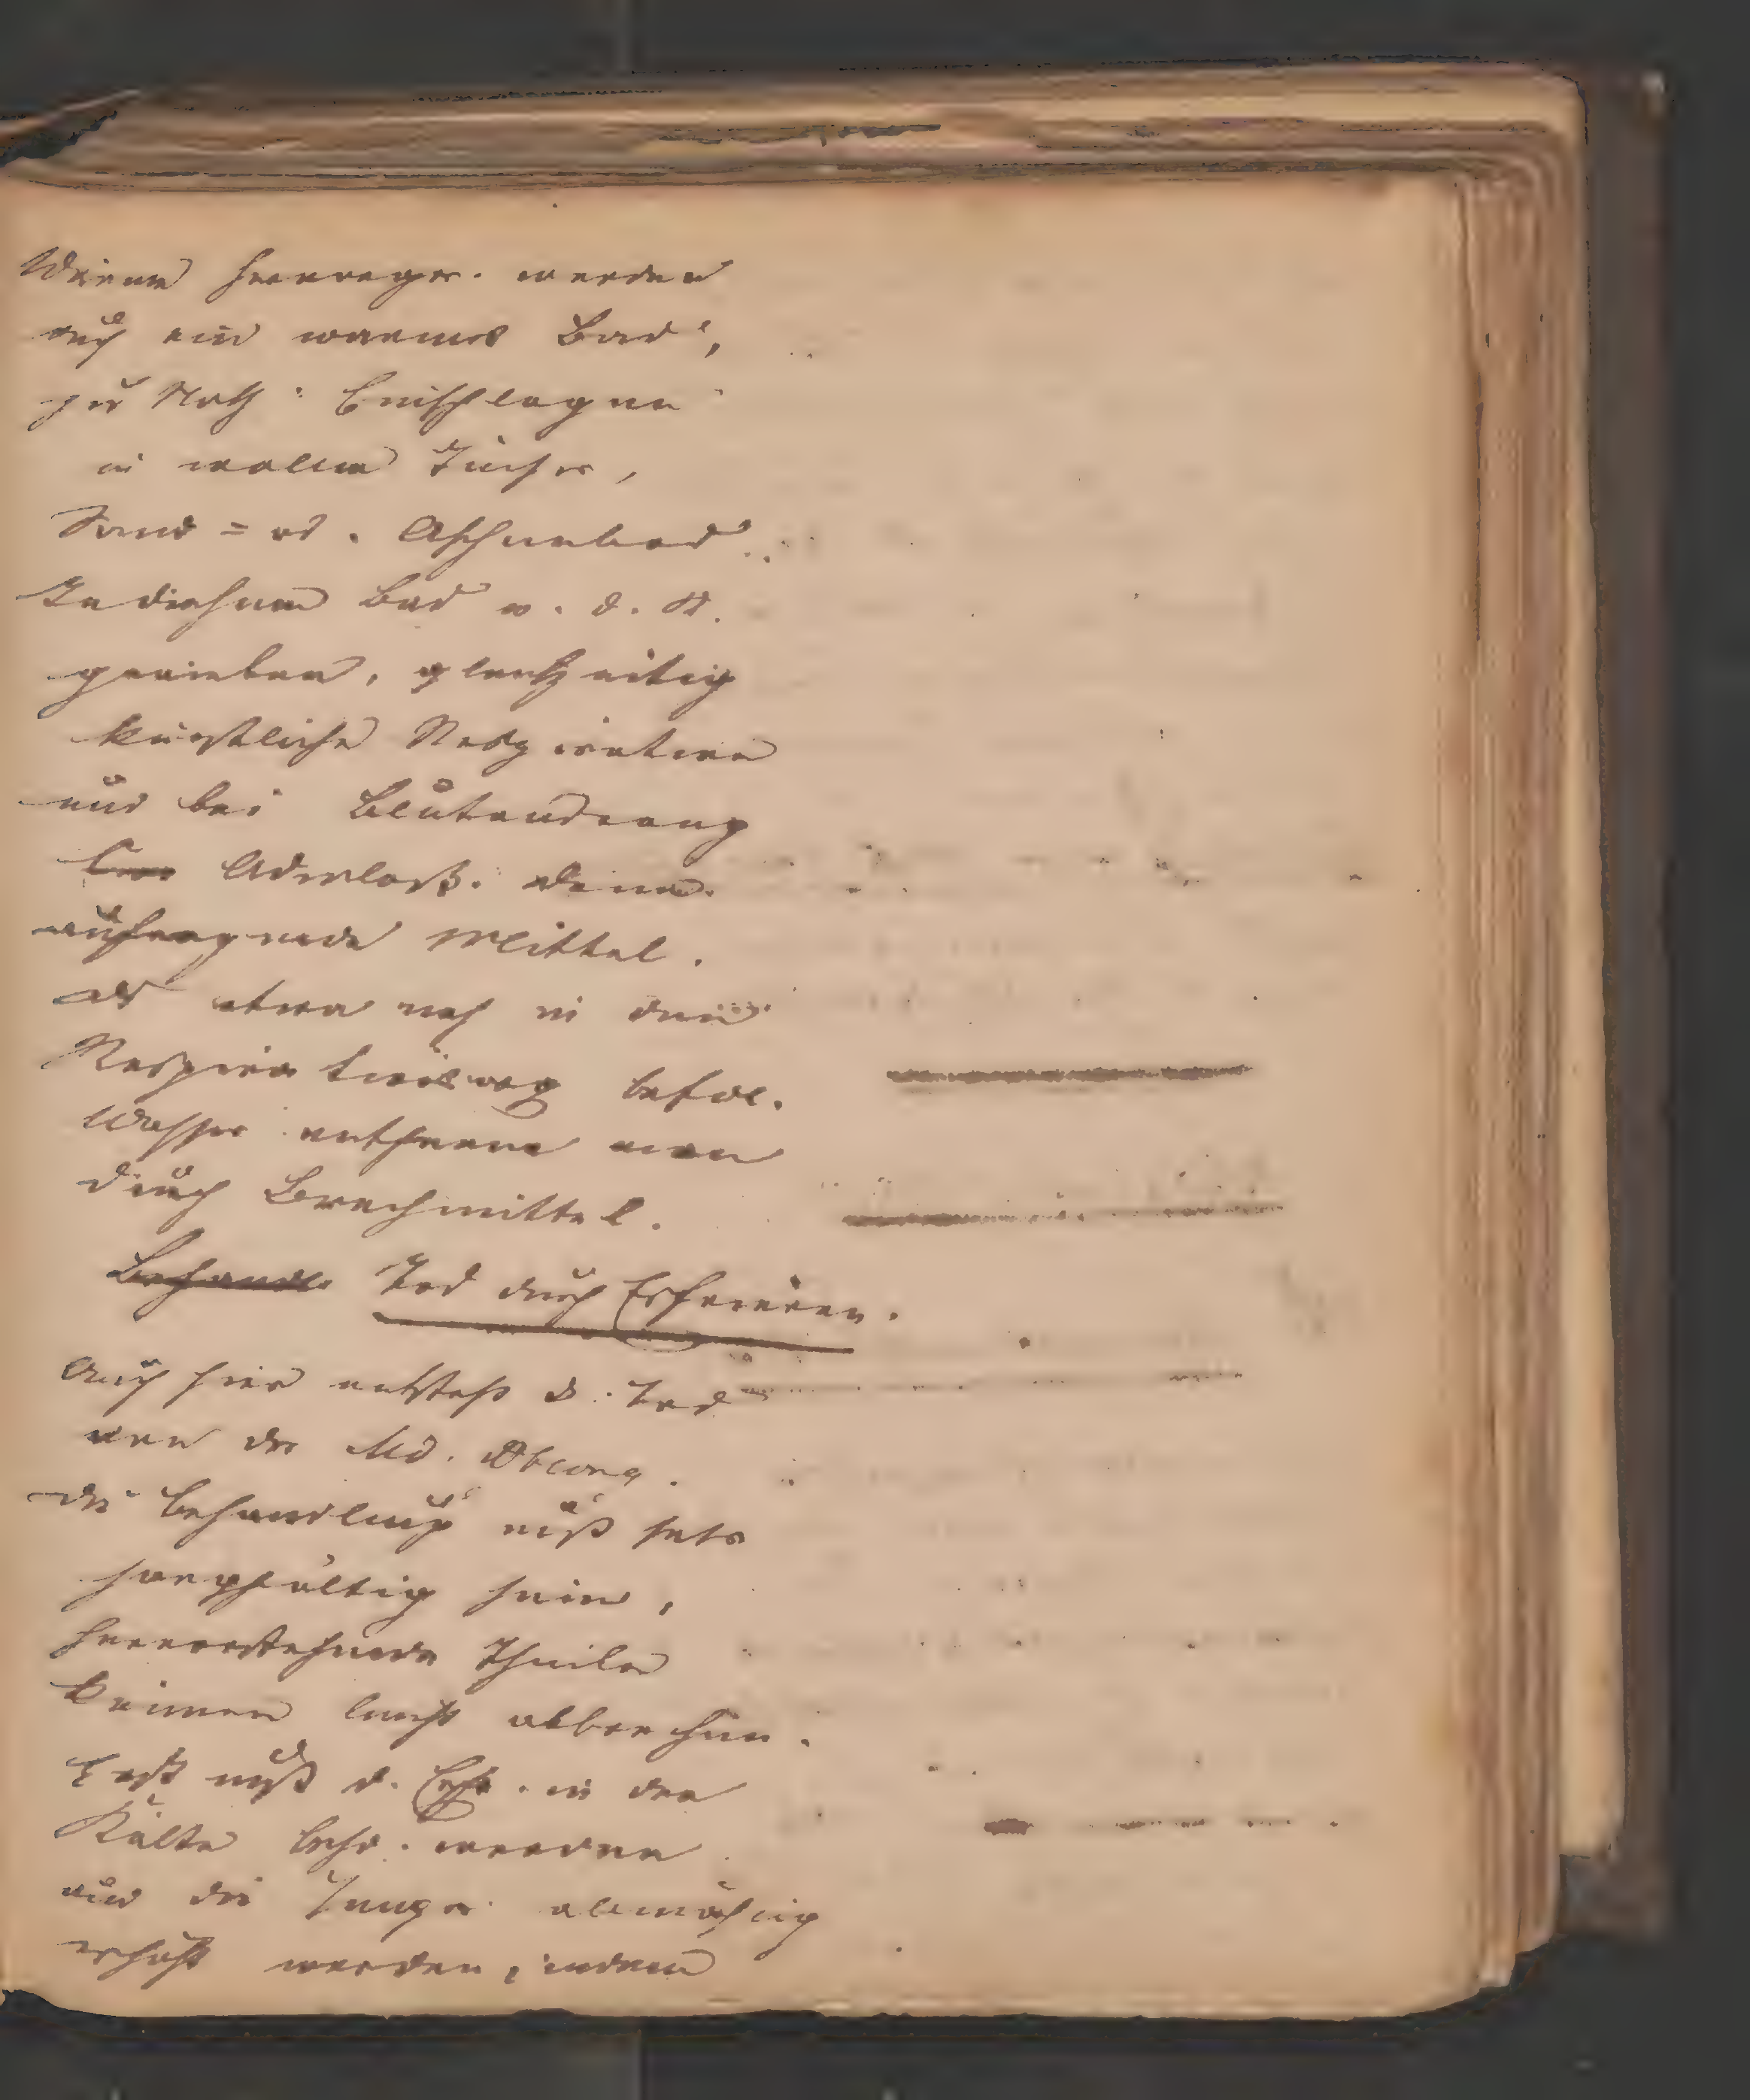 Wärme hervorger. werden
durch ein warmes Bad,
zur Noth: Einschlagen
in wollene Tücher,
Sand= od. Aschenbad.
In diesem Bad w. d. A.
gerieben, gleichzeitig
künstliche Respiration
und bei Blutandrang
Aderlaß. dann
aufregende Mittel.
das etwa noch in den
Respirationsweg befdl.
Wasser entferne man
durch Brechmittel.
Behandl. Tod durch Erfrieren.
Auch hier entsteht d. Tod
von der Md. Oblong.
die Behandlung muß sehr
sorgfältig sein,
hervorstehende Theile
können leicht abbrechen.
Erst muß d. Erfr. in der
Kälte beh. werden
und die Temper. allmählig
erhöht werden, indem